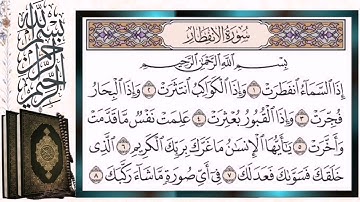 سُورَةُ الِانفِطَارِ
بِسْمِ اللَّهِ الرَّحْمَٰنِ الرَّحِيمِ
إِذَا السَّمَاءُ انفَطَرَتْ ١ وَإِذَا الْكَوَاكِبُ انتَثَرَتْ ٢ وَإِذَا الْبِحَارُ
فُجِّرَتْ ٣ وَإِذَا الْقُبُورُ بُعْثِرَتْ ٤ عَلِمَتْ نَفْسٌ مَّا قَدَّمَتْ
وَأَخَّرَتْ ٥ يَا أَيُّهَا الْإِنسَانُ مَا غَرَّكَ بِرَبِّكَ الْكَرِيمِ ٦ الَّذِي
خَلَقَكَ فَسَوَّاكَ فَعَدَلَكَ ٧ فِي أَيِّ صُورَةٍ مَّا شَاءَ رَكَّبَكَ ٨
بسم الله الرحمن الرحيم